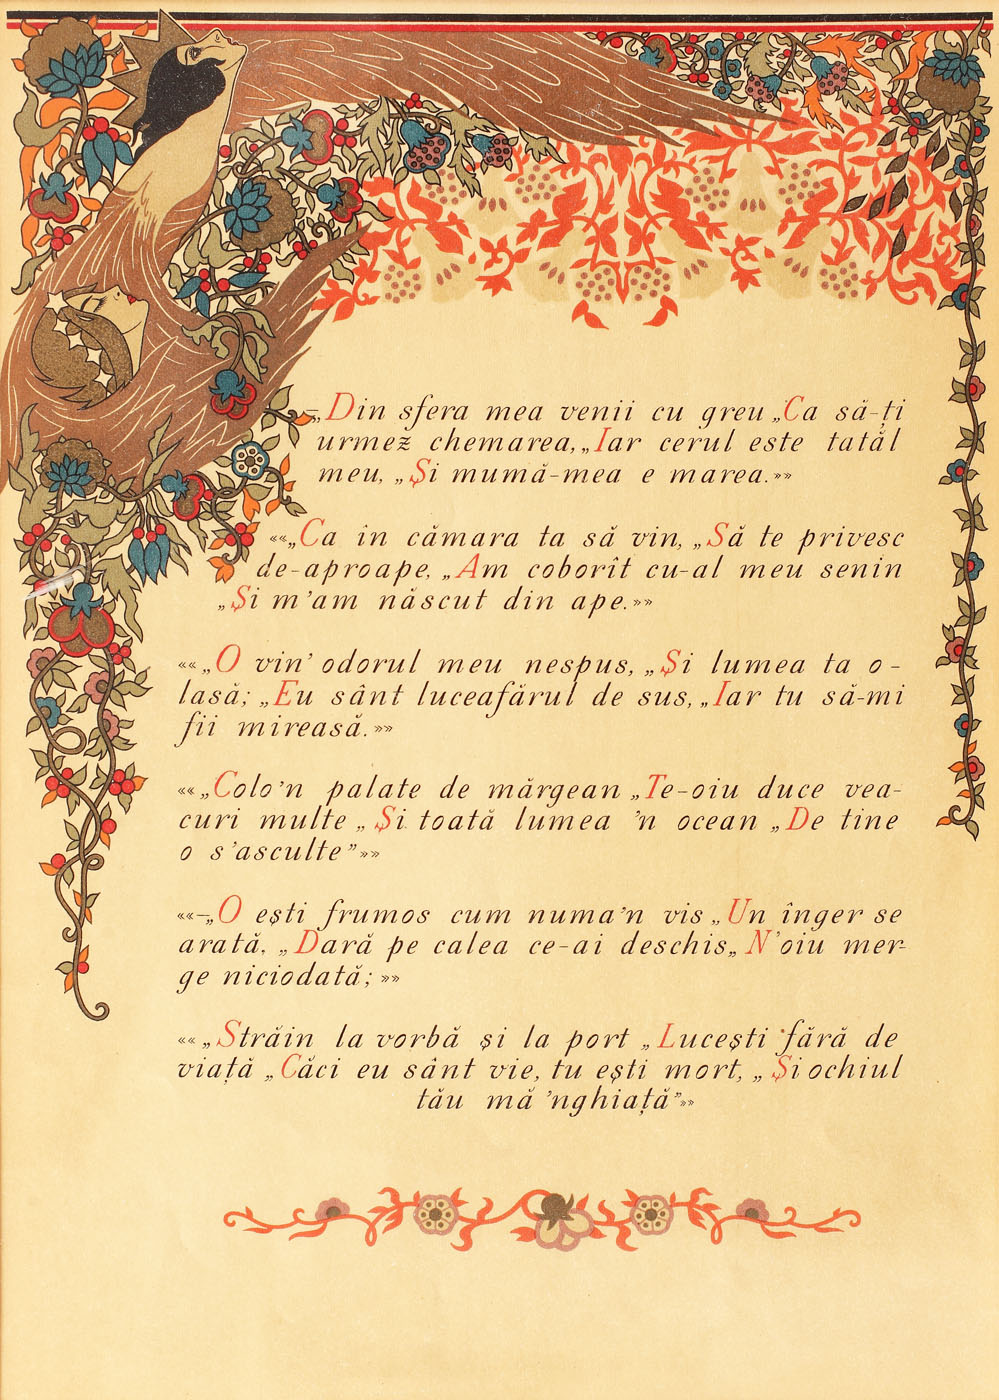 –„Din sfera mea venii cu greu „Ca să-ți
urmez chemarea, „Iar cerul este tatăl
meu, „Și mumă-mea e marea.»»
««„Ca în cămara ta să vin, „Să te privesc
de-aproape, „Am coborît cu-al meu senin
„Și m'am născut din ape.»»
««„O vin' odorul meu nespus, „Și lumea ta o-
lasă; „Eu sânt luceafărul de sus, „Iar tu să-mi
fii mireasă.»»
««„Colo'n palate de mărgean „Te-oiu duce vea-
curi multe „Și toată lumea 'n ocean „De tine
o s'asculte”»»
««–„O ești frumos cum numa'n vis „Un înger se
arată, „Dară pe calea ce-ai deschis „N'oiu mer-
ge niciodată; »»
««„Străin la vorbă și la port „Lucești fără de
viață „Căci eu sânt vie, tu ești mort, „Și ochiul
tău mă 'nghiață”»»